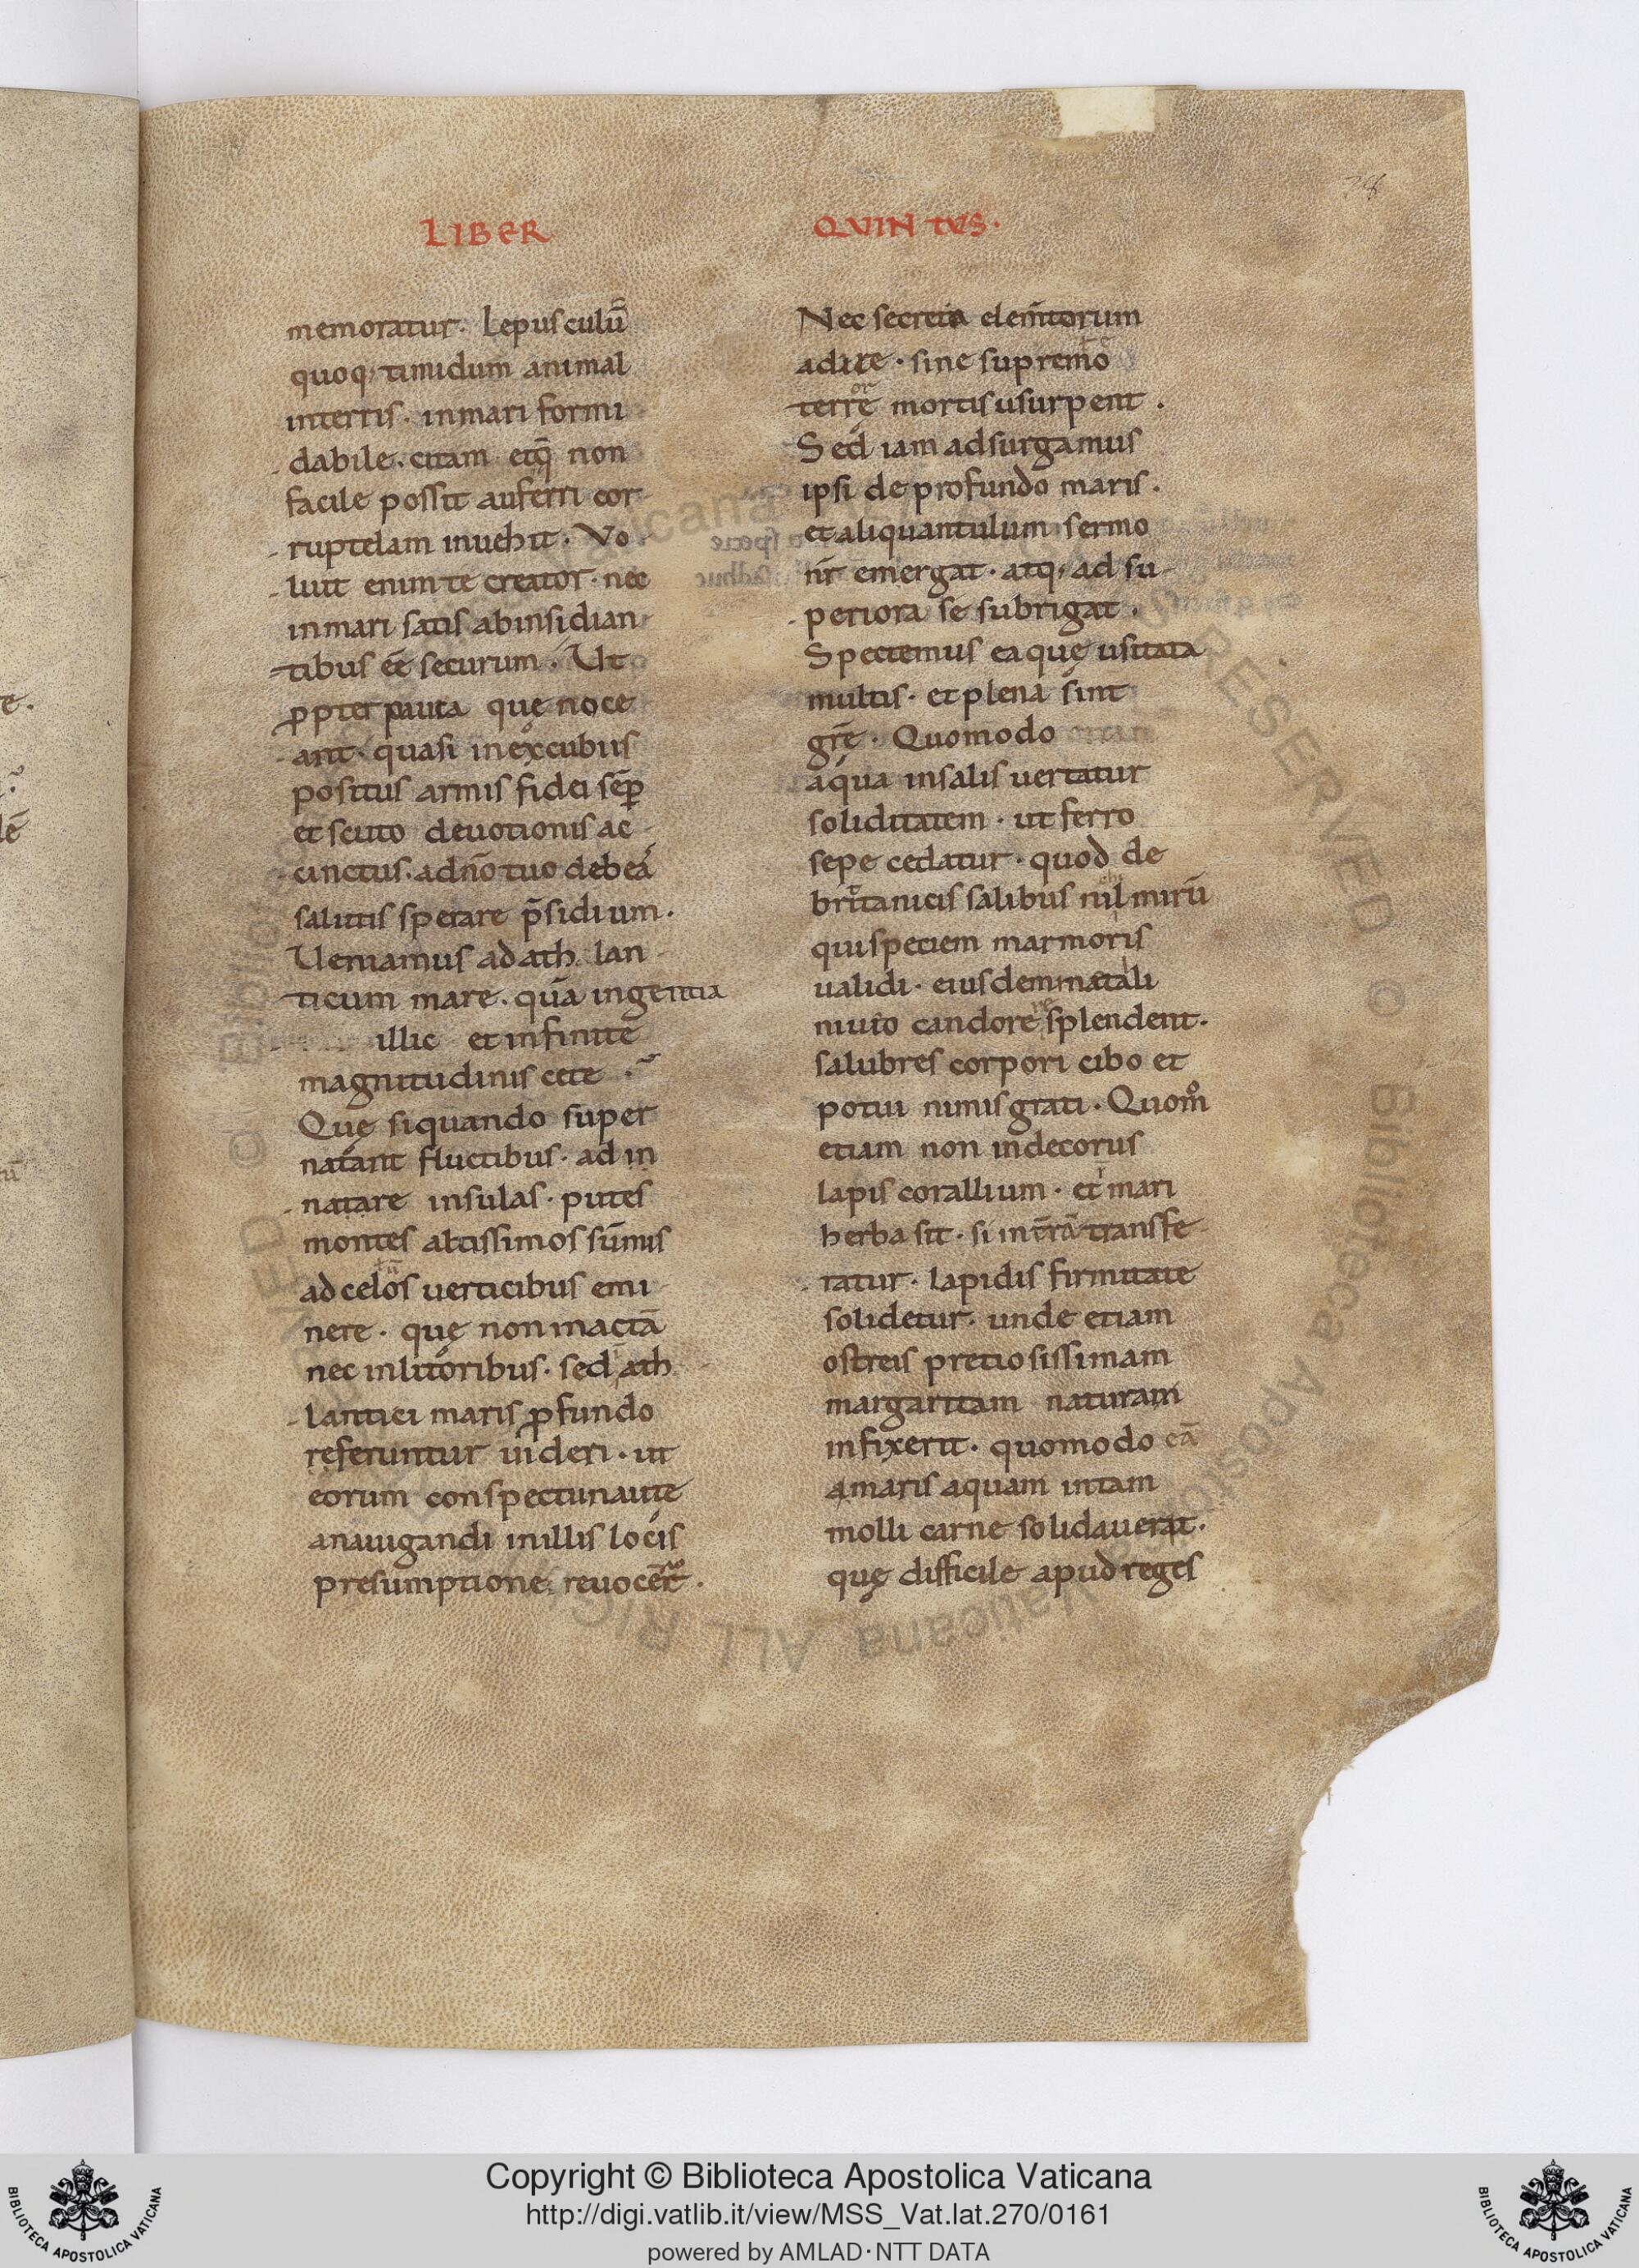 LIBER QVINTVS·
memoratur· Lepusculū
quoq; timidum animal
interris· inmari formi
dabile· citam etq̄ non
facile possit auferri cor
ruptelam inuehit· Vo
luit enim te creator· nec
inmari satis abinsidian
tibus eē securum· Ut
ꝓpter pauca quę noce
ant· quasi inexcubiis
positus armis fidei sēp
et scuto deuotionis ac
cinctus· adn̄o tuo debeā
salutis sperare p̄sidium·
Ueniamus ad ath lan
ticum mare· quā ingentia
illic et infinite
magnitudinis cete
Quę siquando super
natant fluctibus· ad in
natare insulas· putes
montes altissimos sūmis
ad celos uerticibus emi
nere· quę non inactā
nec inlitoribus· sed ath
lantici maris ꝓfundo
referuntur uideri· ut
eorum conspectu nauite
anauigandi inillis locis
presumptione reuocent·
Nec secreta elem̄torum
adire· sine supremo
terrē mortis usurpent·
Sed iam adsurgamus
ipsi de profundo maris·
et aliquantulum sermo
nr̄ emergat· atq; ad su
periora se subrigat·
Spectemus ea quę usitata
multis· et plena sint
grē· Quomodo
aqua insalis uertatur
soliditatem· ut ferro
sepe cedatur· quod de
britanicis salibus nil mirū
qui speciem marmoris
ualidi· eiusdem metali
niuio candore splendent·
salubres corpori cibo et
potui nimis grati· Quom̊
etiam non indecorus
lapis corallium· et mari
herba sit· si int̄rā transfe
ratur· lapidis firmitate
solidetur· unde etiam
ostreis pretiosissimam
margaritam naturam
infixerit· quomodo eā
amaris aquam intam
molli carne solidauerit·
quę difficile apud reges
Copyright © Biblioteca Apostolica Vaticana
http://digi.vatlib.it/view/MSS_Vat.lat.270/0161
powered by AMLAD·NTT DATA
BIBLIOTECA APOSTOLICA VATICANA
BIBLIOTECA APOSTOLICA VATICANA